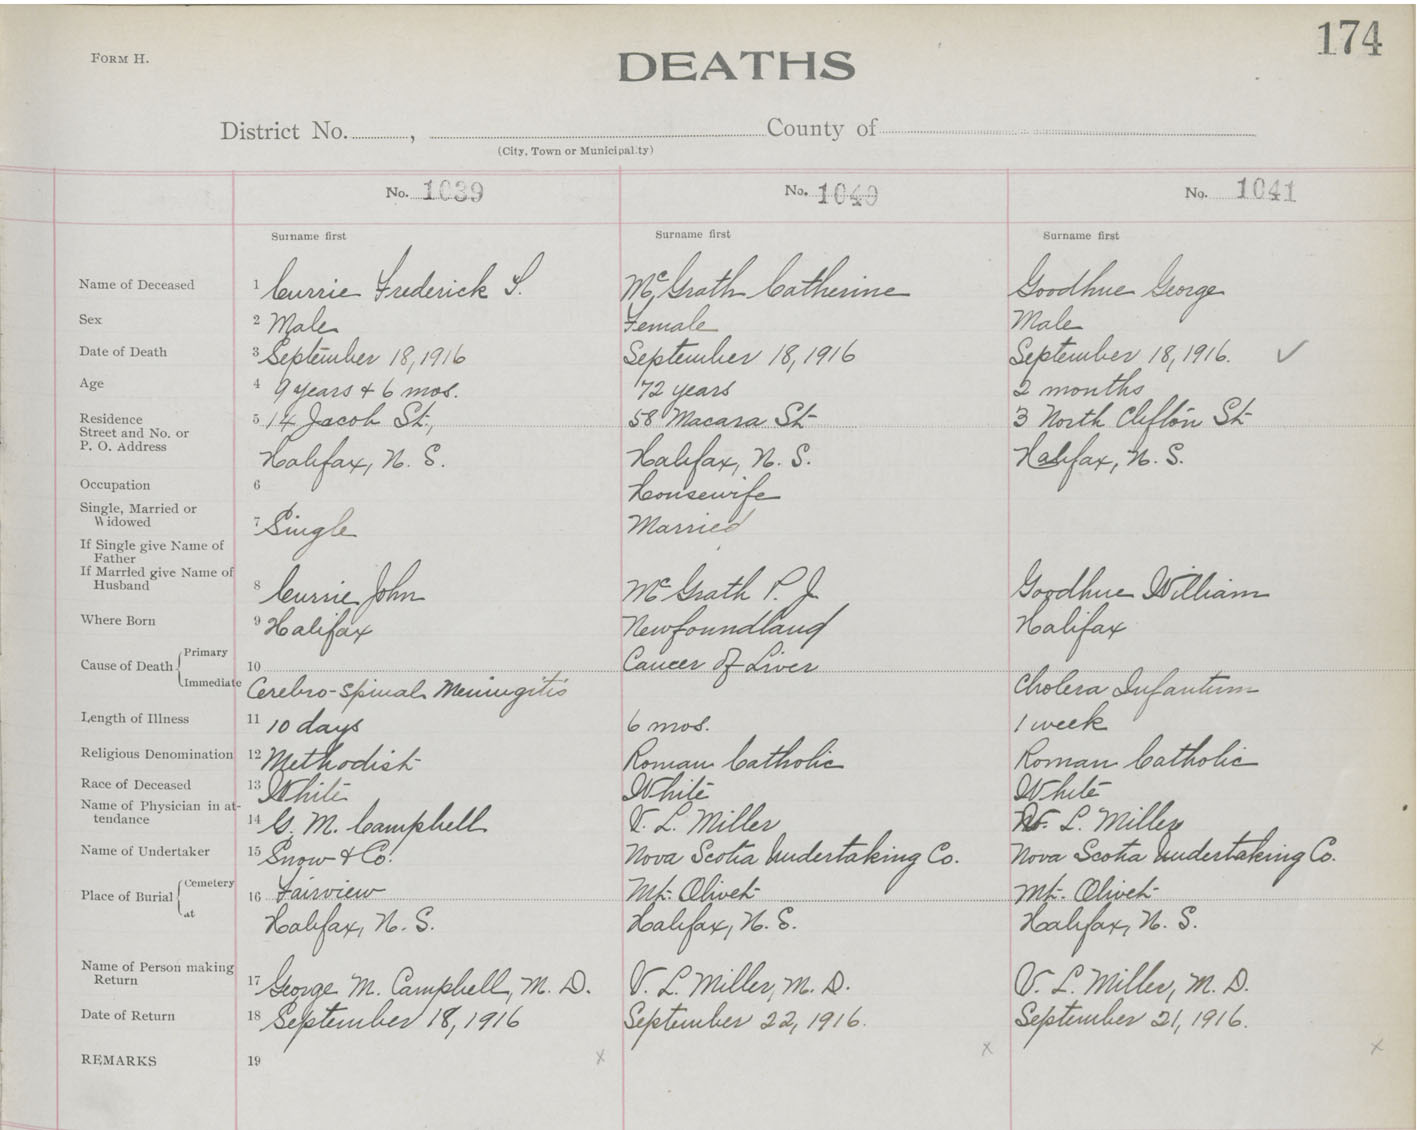 174
FORM H.
DEATHS
District No. , County of
(City, Town or Municipality)
No. 1039 No. 1040 No. 1041
Surname first Surname first Surname first
Name of Deceased 1 Currie Frederick S. McGrath Catherine Goodhue George
Sex 2 Male Female Male
Date of Death 3 September 18, 1916 September 18, 1916 September 18, 1916. ✓
Age 4 9 years + 6 mos. 72 years 2 months
Residence 5 14 Jacob St., 58 Macara St 3 North Clifton St
Street and No. or
P. O. Address Halifax, N. S. Halifax, N. S. Halifax, N. S.
Occupation 6 Housewife
Single, Married or
Widowed 7 Single Married
If Single give Name of
Father
If Married give Name of
Husband 8 Currie John McGrath P. J. Goodhue William
Where Born 9 Halifax Newfoundland Halifax
Primary
Cause of Death 10 Cancer of Liver
Immediate Cerebro-spinal Meningitis Cholera Infantum
Length of Illness 11 10 days 6 mos. 1 week
Religious Denomination 12 Methodist Roman Catholic Roman Catholic
Race of Deceased 13 White White White
Name of Physician in at-
tendance 14 G. M. Campbell V. L. Miller L. Miller
Name of Undertaker 15 Snow & Co. Nova Scotia Undertaking Co. Nova Scotia Undertaking Co.
Cemetery
Place of Burial 16 Fairview Mt. Olivet Mt. Olivet
at Halifax, N. S. Halifax, N. S. Halifax, N. S.
Name of Person making
Return 17 George M. Campbell, M. D. V. L. Miller, M. D. V. L. Miller, M. D.
Date of Return 18 September 18, 1916 September 22, 1916. September 21, 1916.
REMARKS 19 x x x